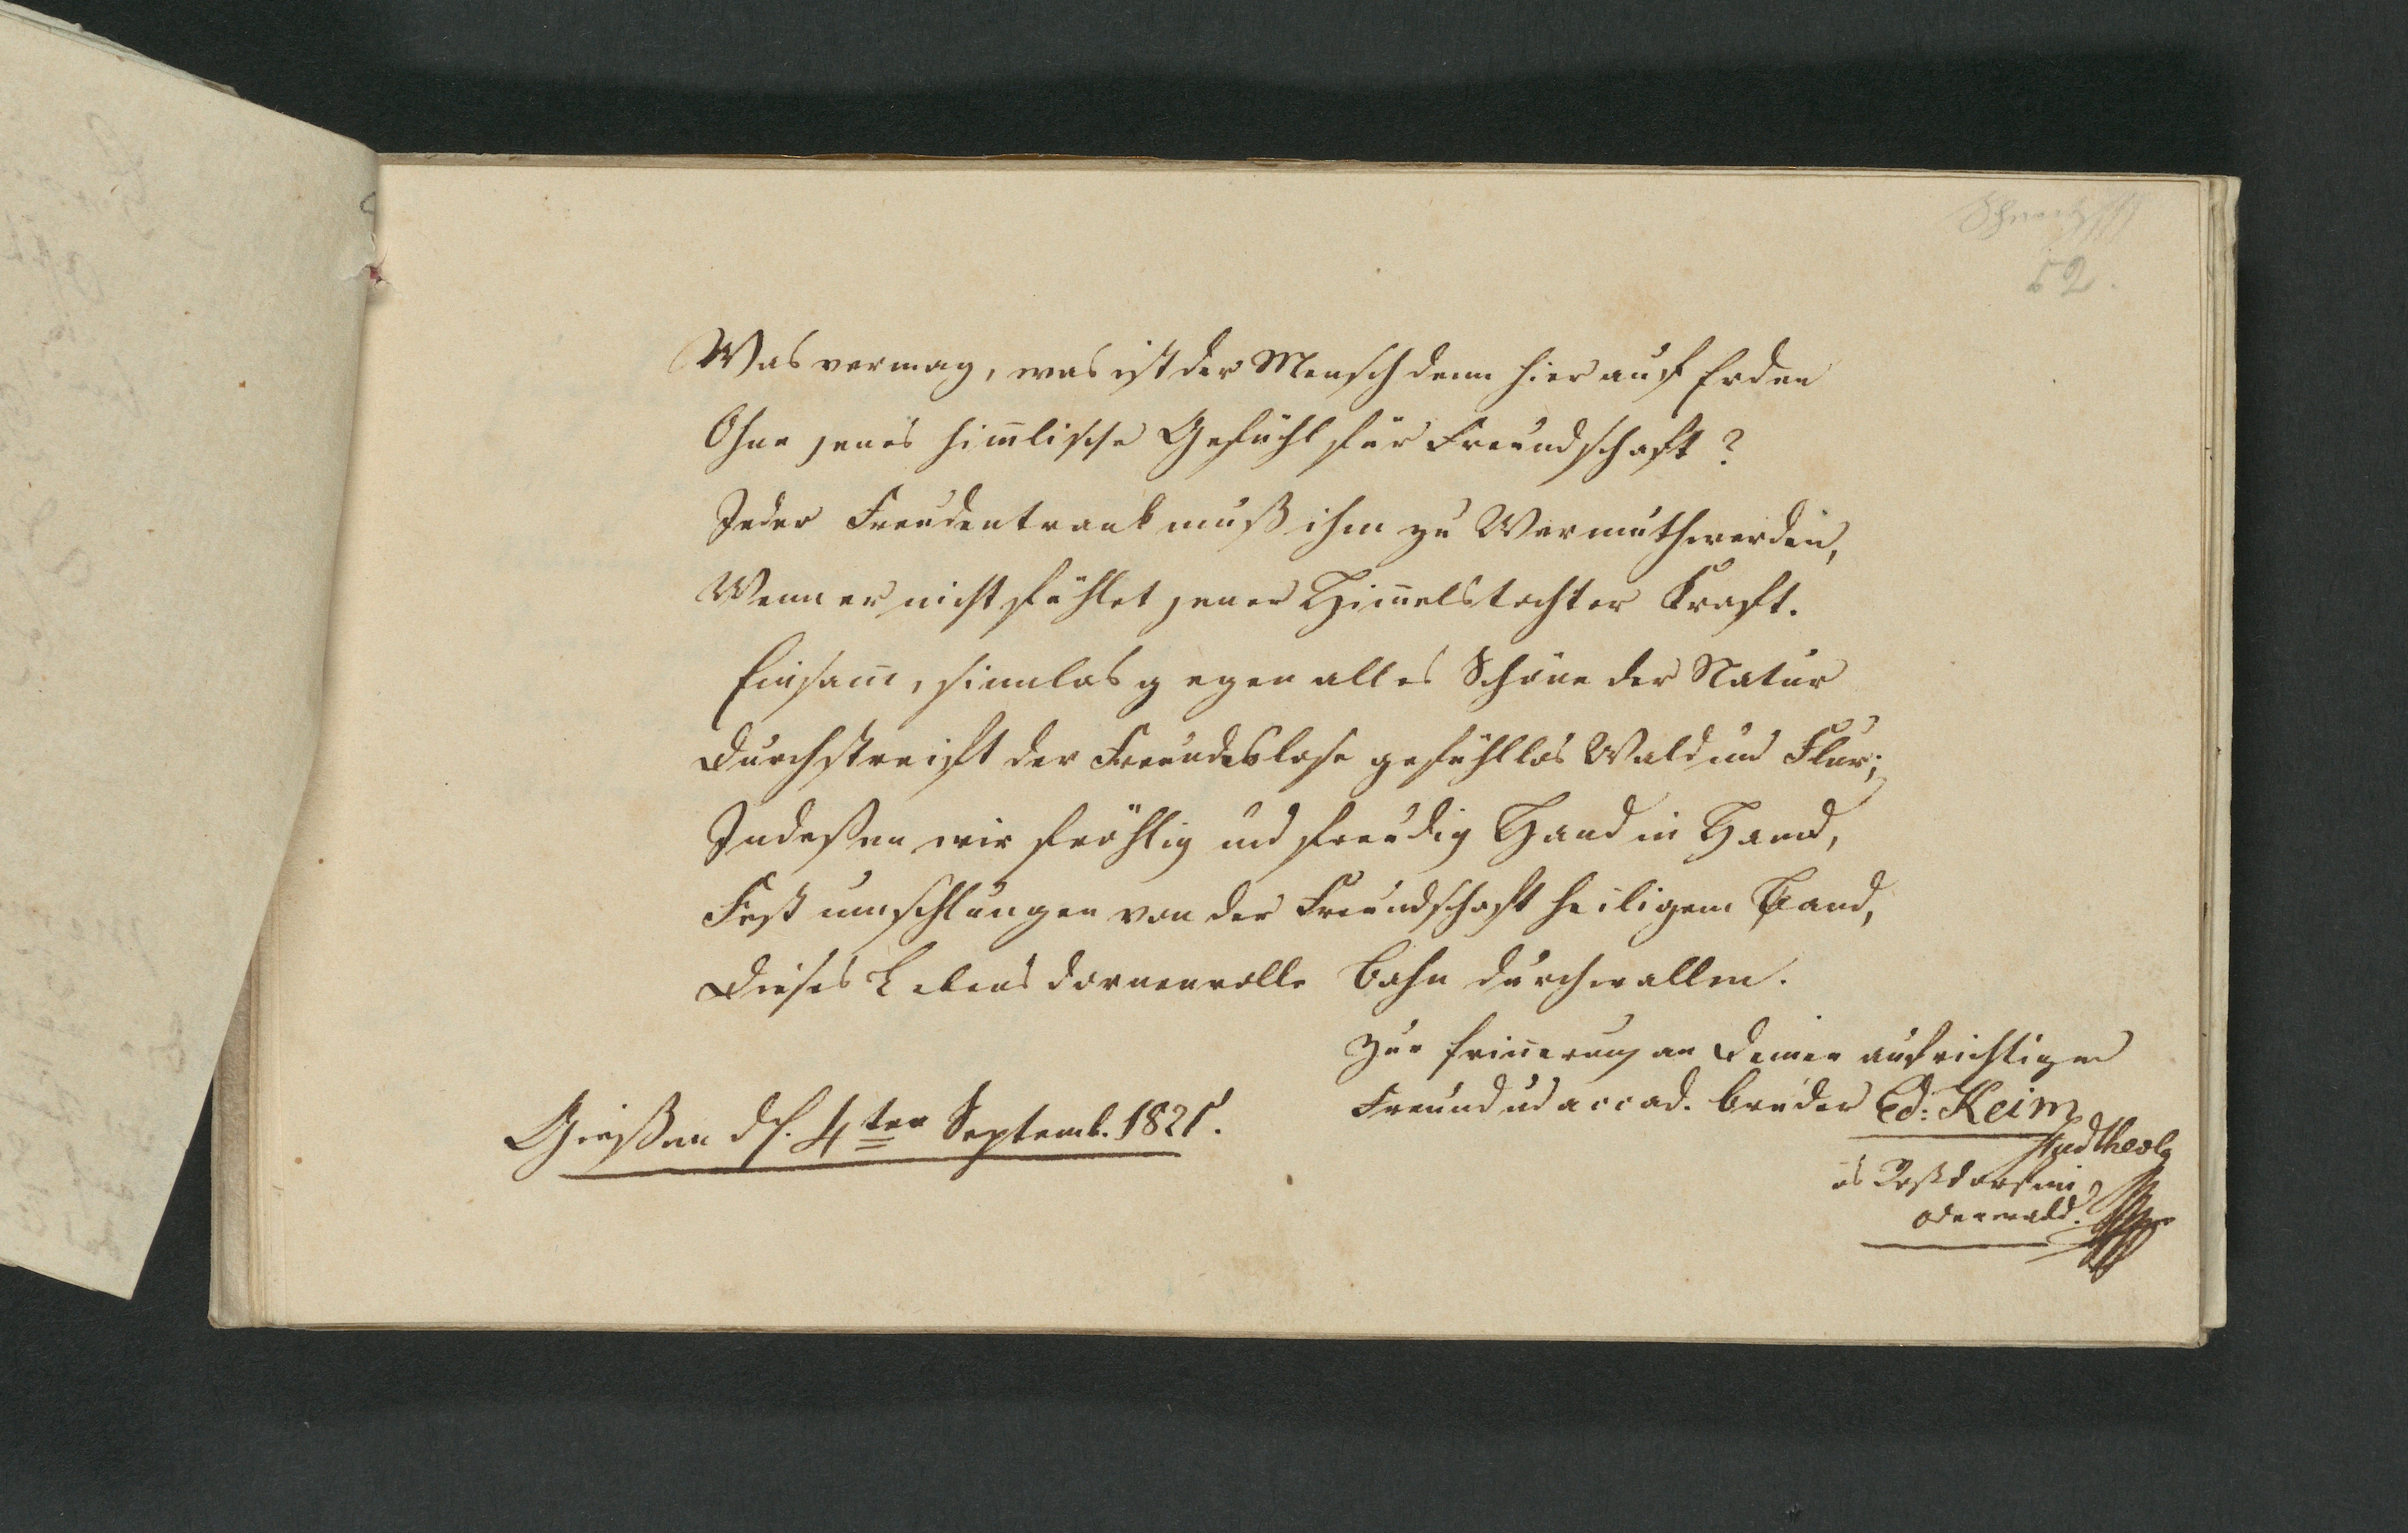 52.
Was vermag, was ist der Mensch denn hier auf Erden
Ohne jenes him̄lische Gefühl für Freundschaft?
Jeder Freudentrank muß ihm zu Wermuth werden,
Wenn er nicht fühlet jener Him̄elstochter Kraft.
Einsam̄, sinnlos gegen alles Schöne der Natur
Durchstreift der Freundeslose gefühllos Wald und Flur;
Indeßen wir fröhlig und freudig Hand in Hand,
Fest umschlungen von der Freundschaft heiligem Band,
Dieses Lebens dornenvolle Bahn durchwallen.
Zur Erin̄erung an Deinen aufrichtigen
Freund ud accad. Bruder Ed: Keim
Stud theolg
Odenwald.
Gießen d. 4ten Septemb. 1821.